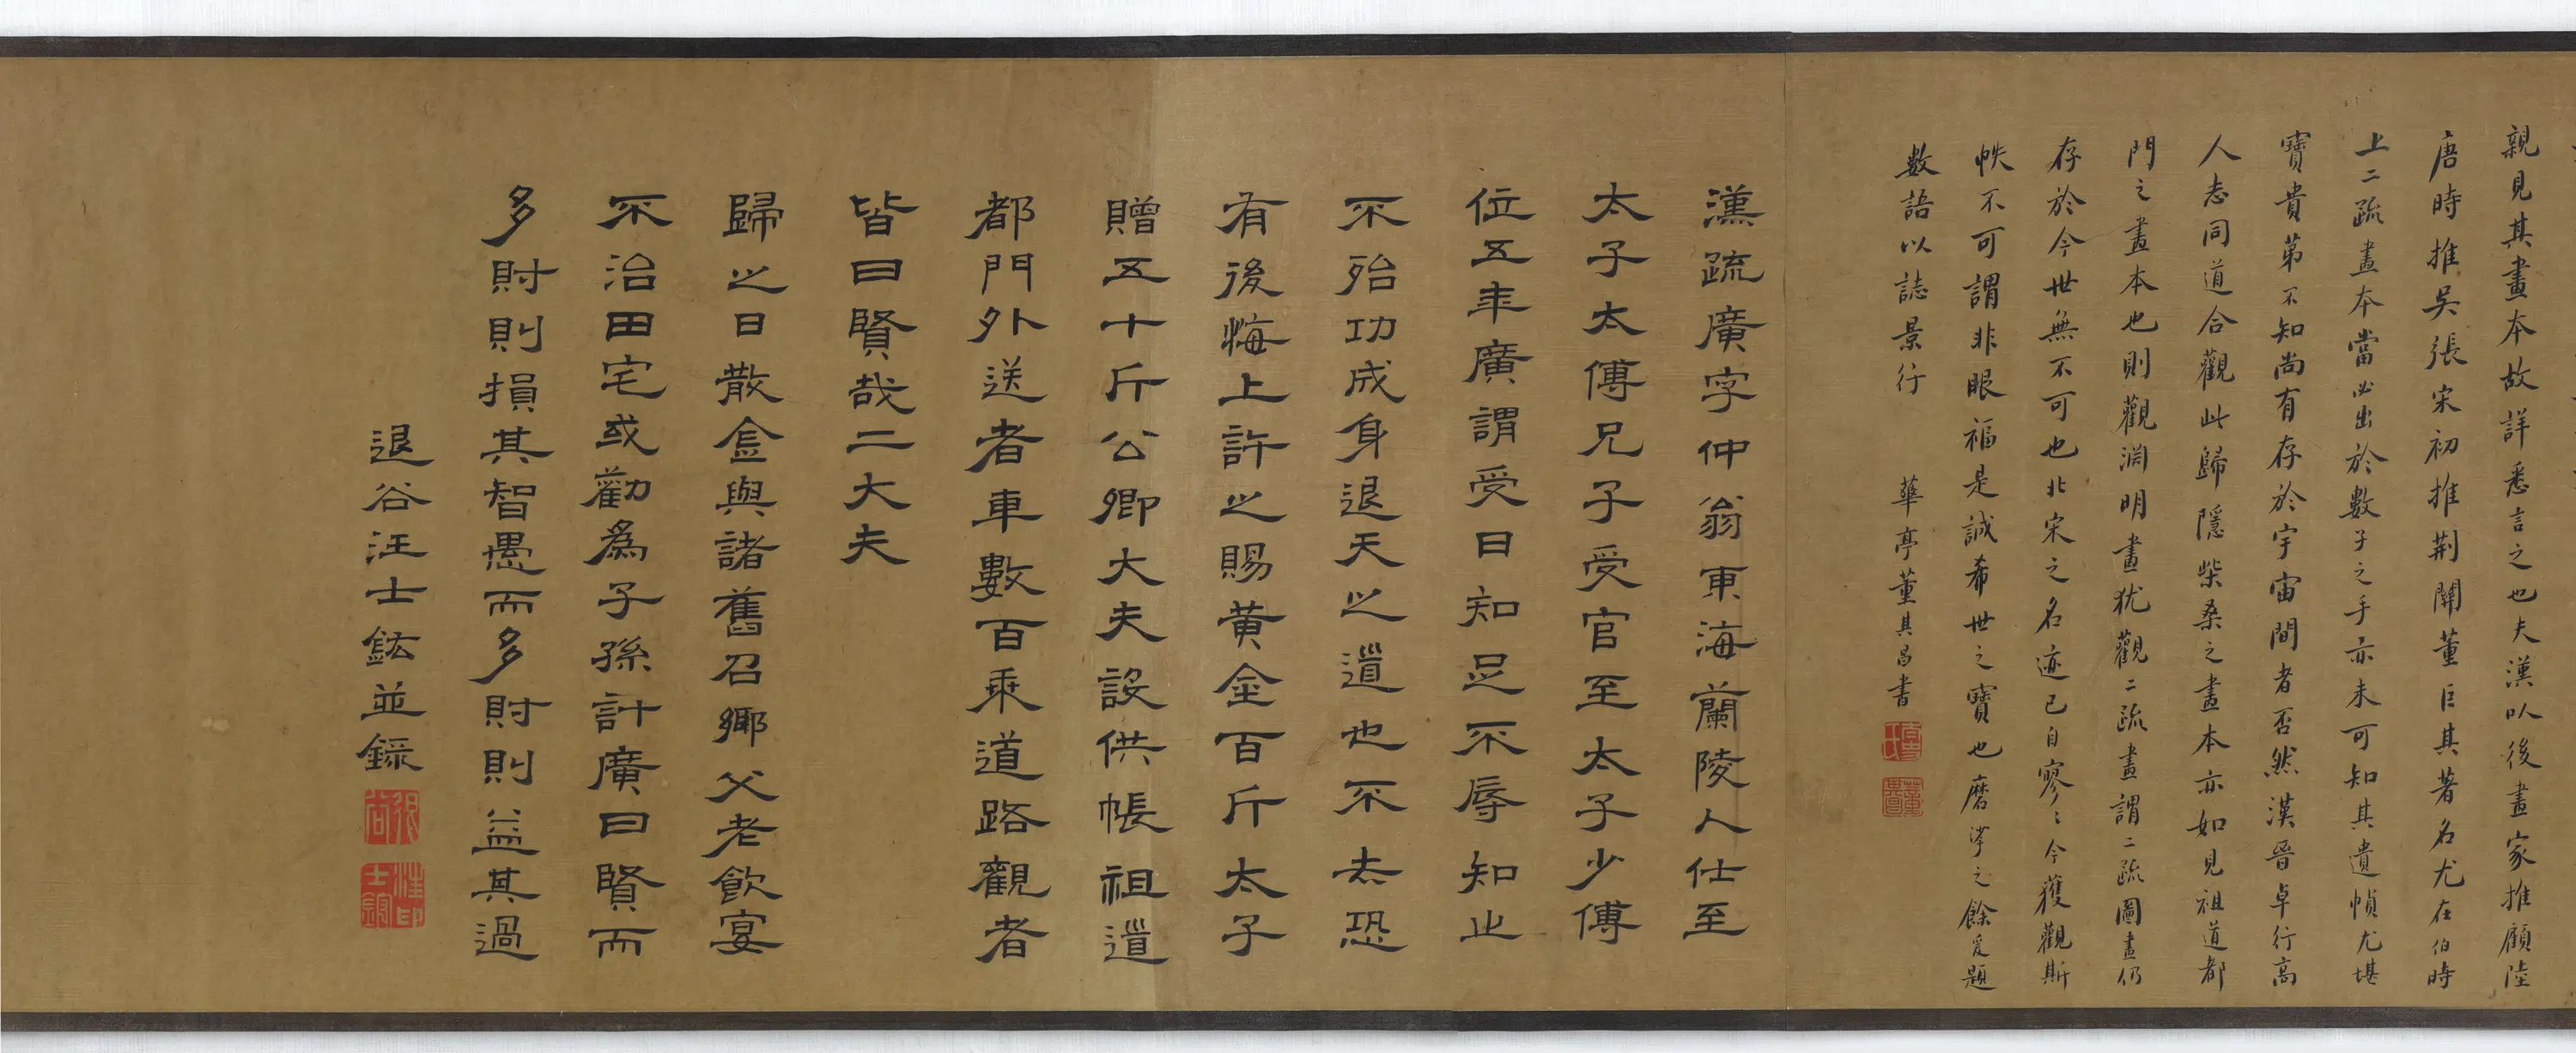 親見其畫本故詳悉言之也夫漢以後畫家推顧陸
唐時推吳張宋初推荆關董巨其著名尤在伯時
上二疏畫本當必出於數子之手亦未可知其遺幀尤堪
寶貴第不知尚有存於宇宙間者否然漢晉卓行高
人志同道合觀此歸隱柴桑之畫本亦如見祖道都
門之畫本也則觀淵明畫猶觀二疏畫謂二疏圖畫仍
存於今世無不可也北宋之名迹已自寥〻今獲觀斯
帙不可謂非眼福是誠希世之寶也磨挲之餘爰題
數語以誌景行 華亭董其昌書
漢疏廣字仲翁東海蘭陵人仕至
太子太傅兄子受官至太子少傅
位五年廣謂受曰知足不辱知止
不殆功成身退天之道也不去恐
有後悔上許之賜黃金百斤太子
贈五十斤公卿大夫設供帳祖道
都門外送者車數百乘道路觀者
皆曰賢哉二大夫
歸之日散金與諸舊召鄉父老飲宴
不治田宅或勸為子孫計廣曰賢而
多財則損其智愚而多財則益其過
退谷汪士鋐並錄